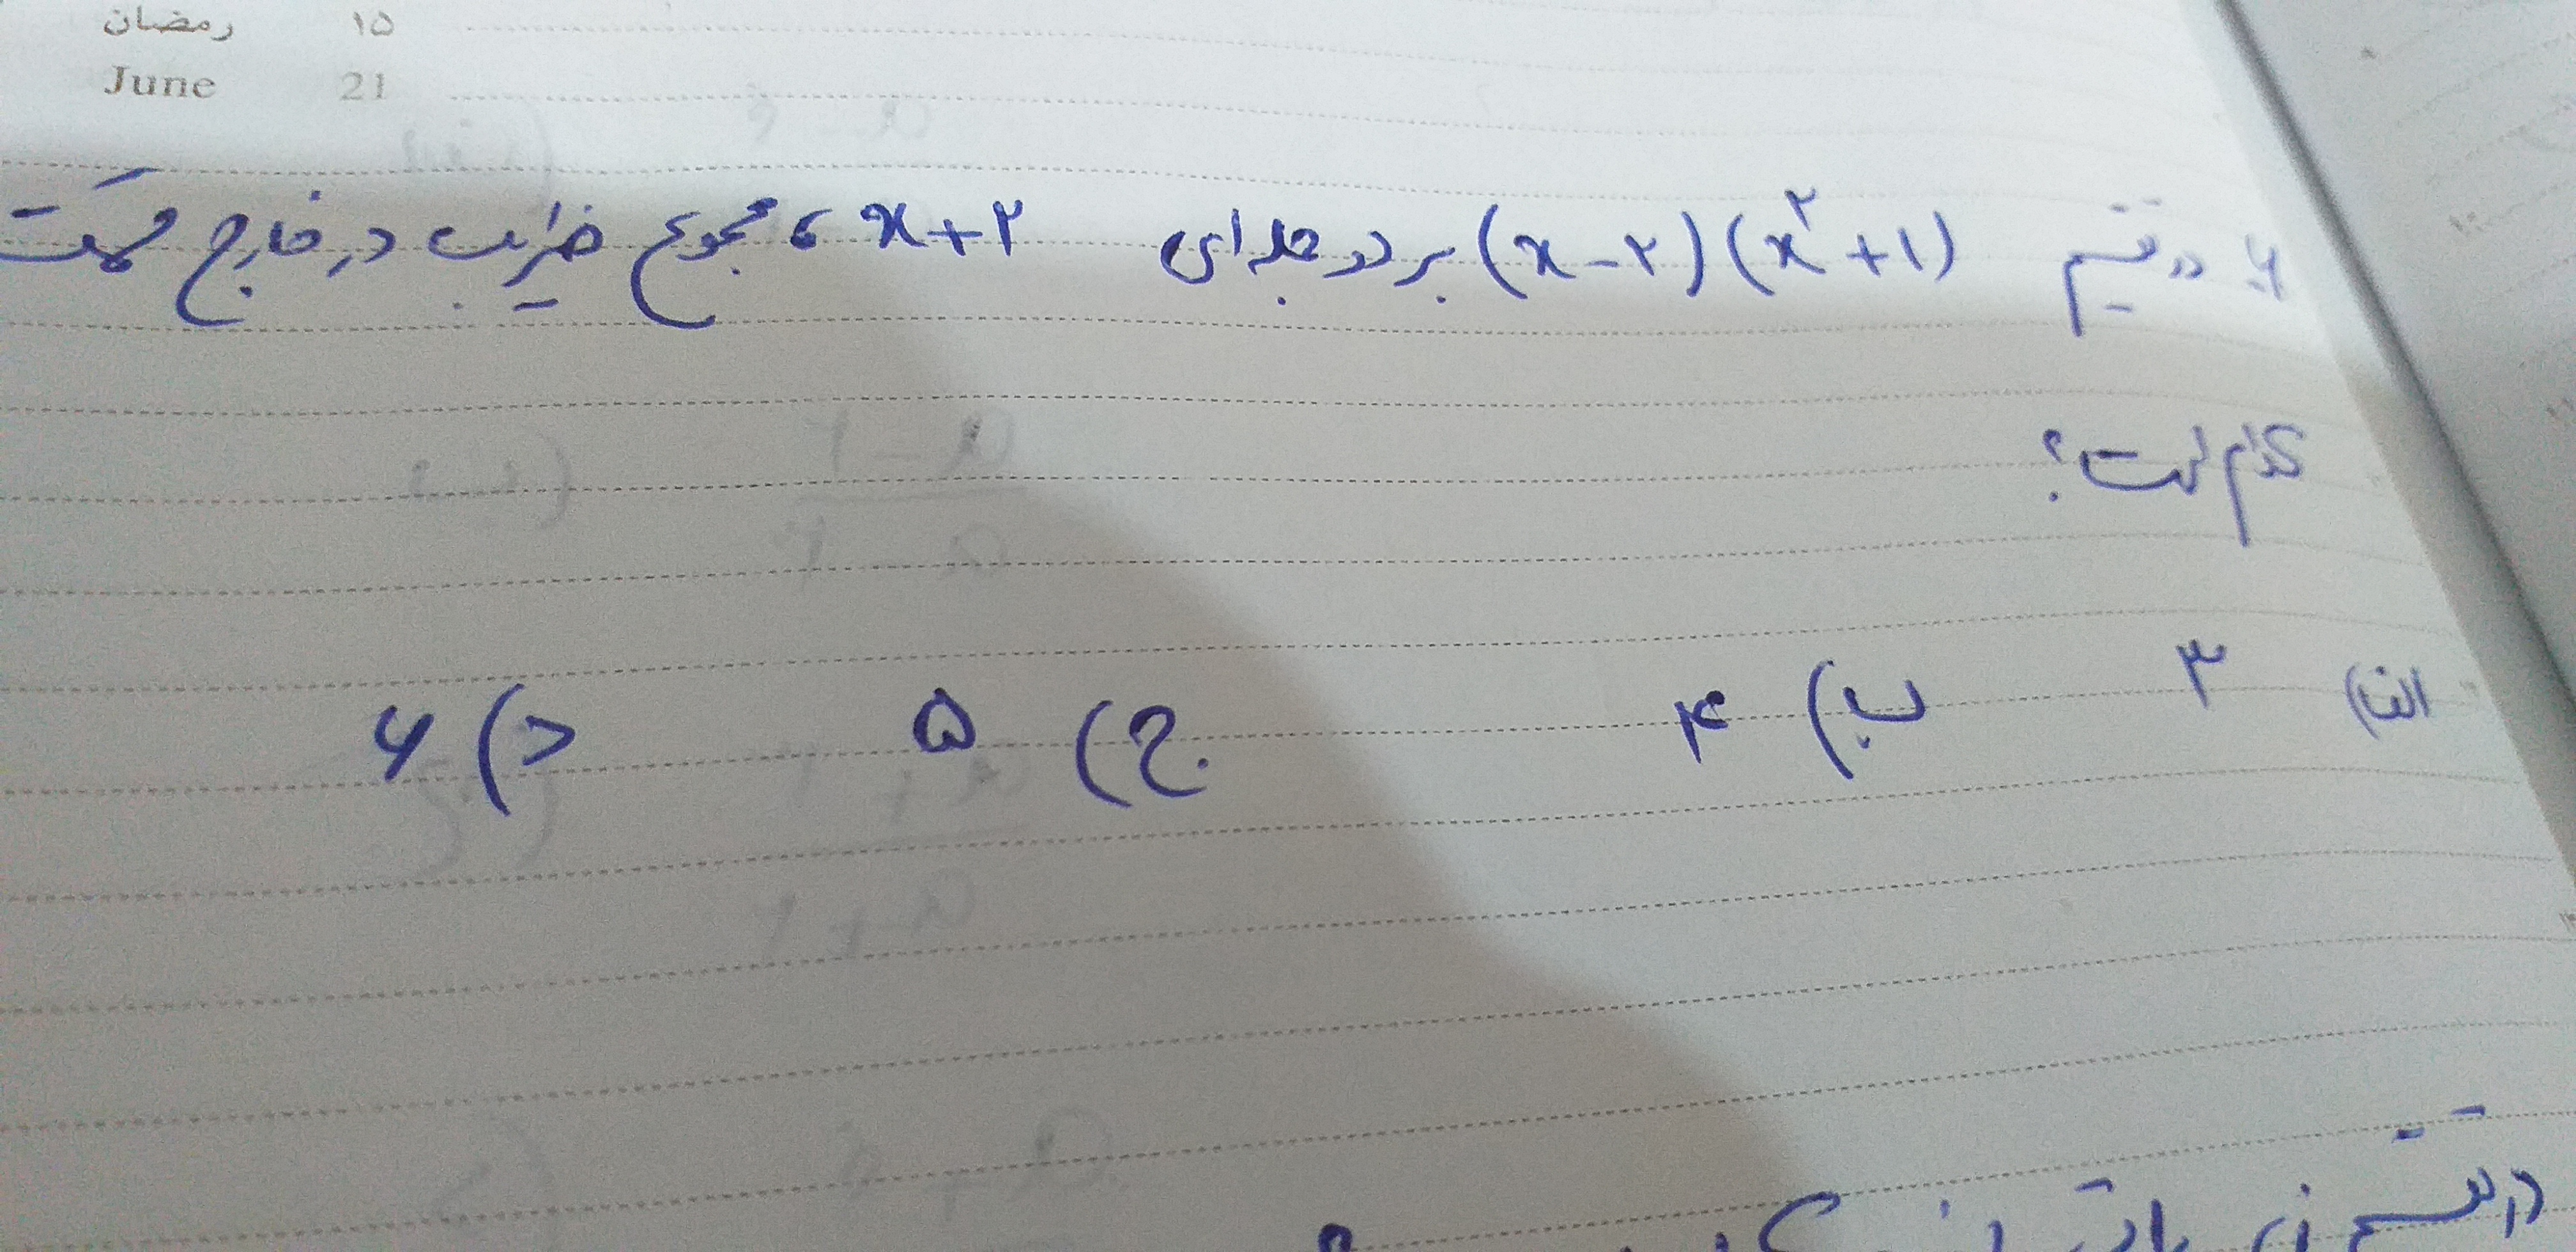 رمضان ۱۵
June 21
۶. در تقسیم (x-۲)(x^۲+۱) بر دو جمله ای x+۲ ، مجموع ضرایب در خارج قسمت
کدام است؟
الف) ۳ ب) ۴ ج) ۵ د) ۶
در تقسیم